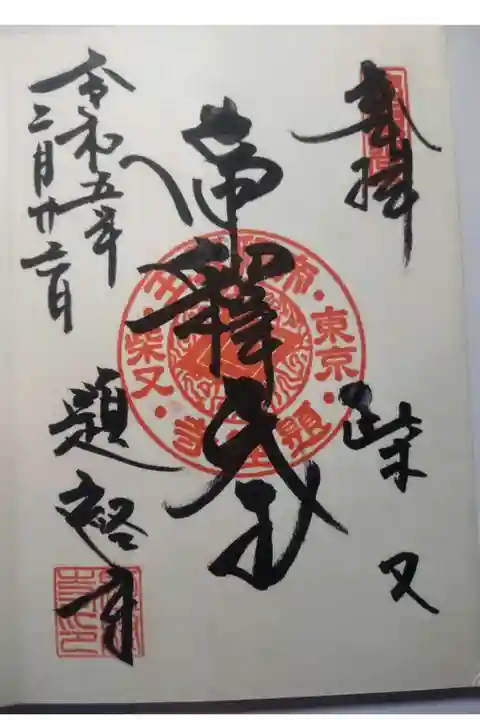 奉拝
柴又
帝釋天王
令和五年
二月廿二日
題経寺
東京
柴又